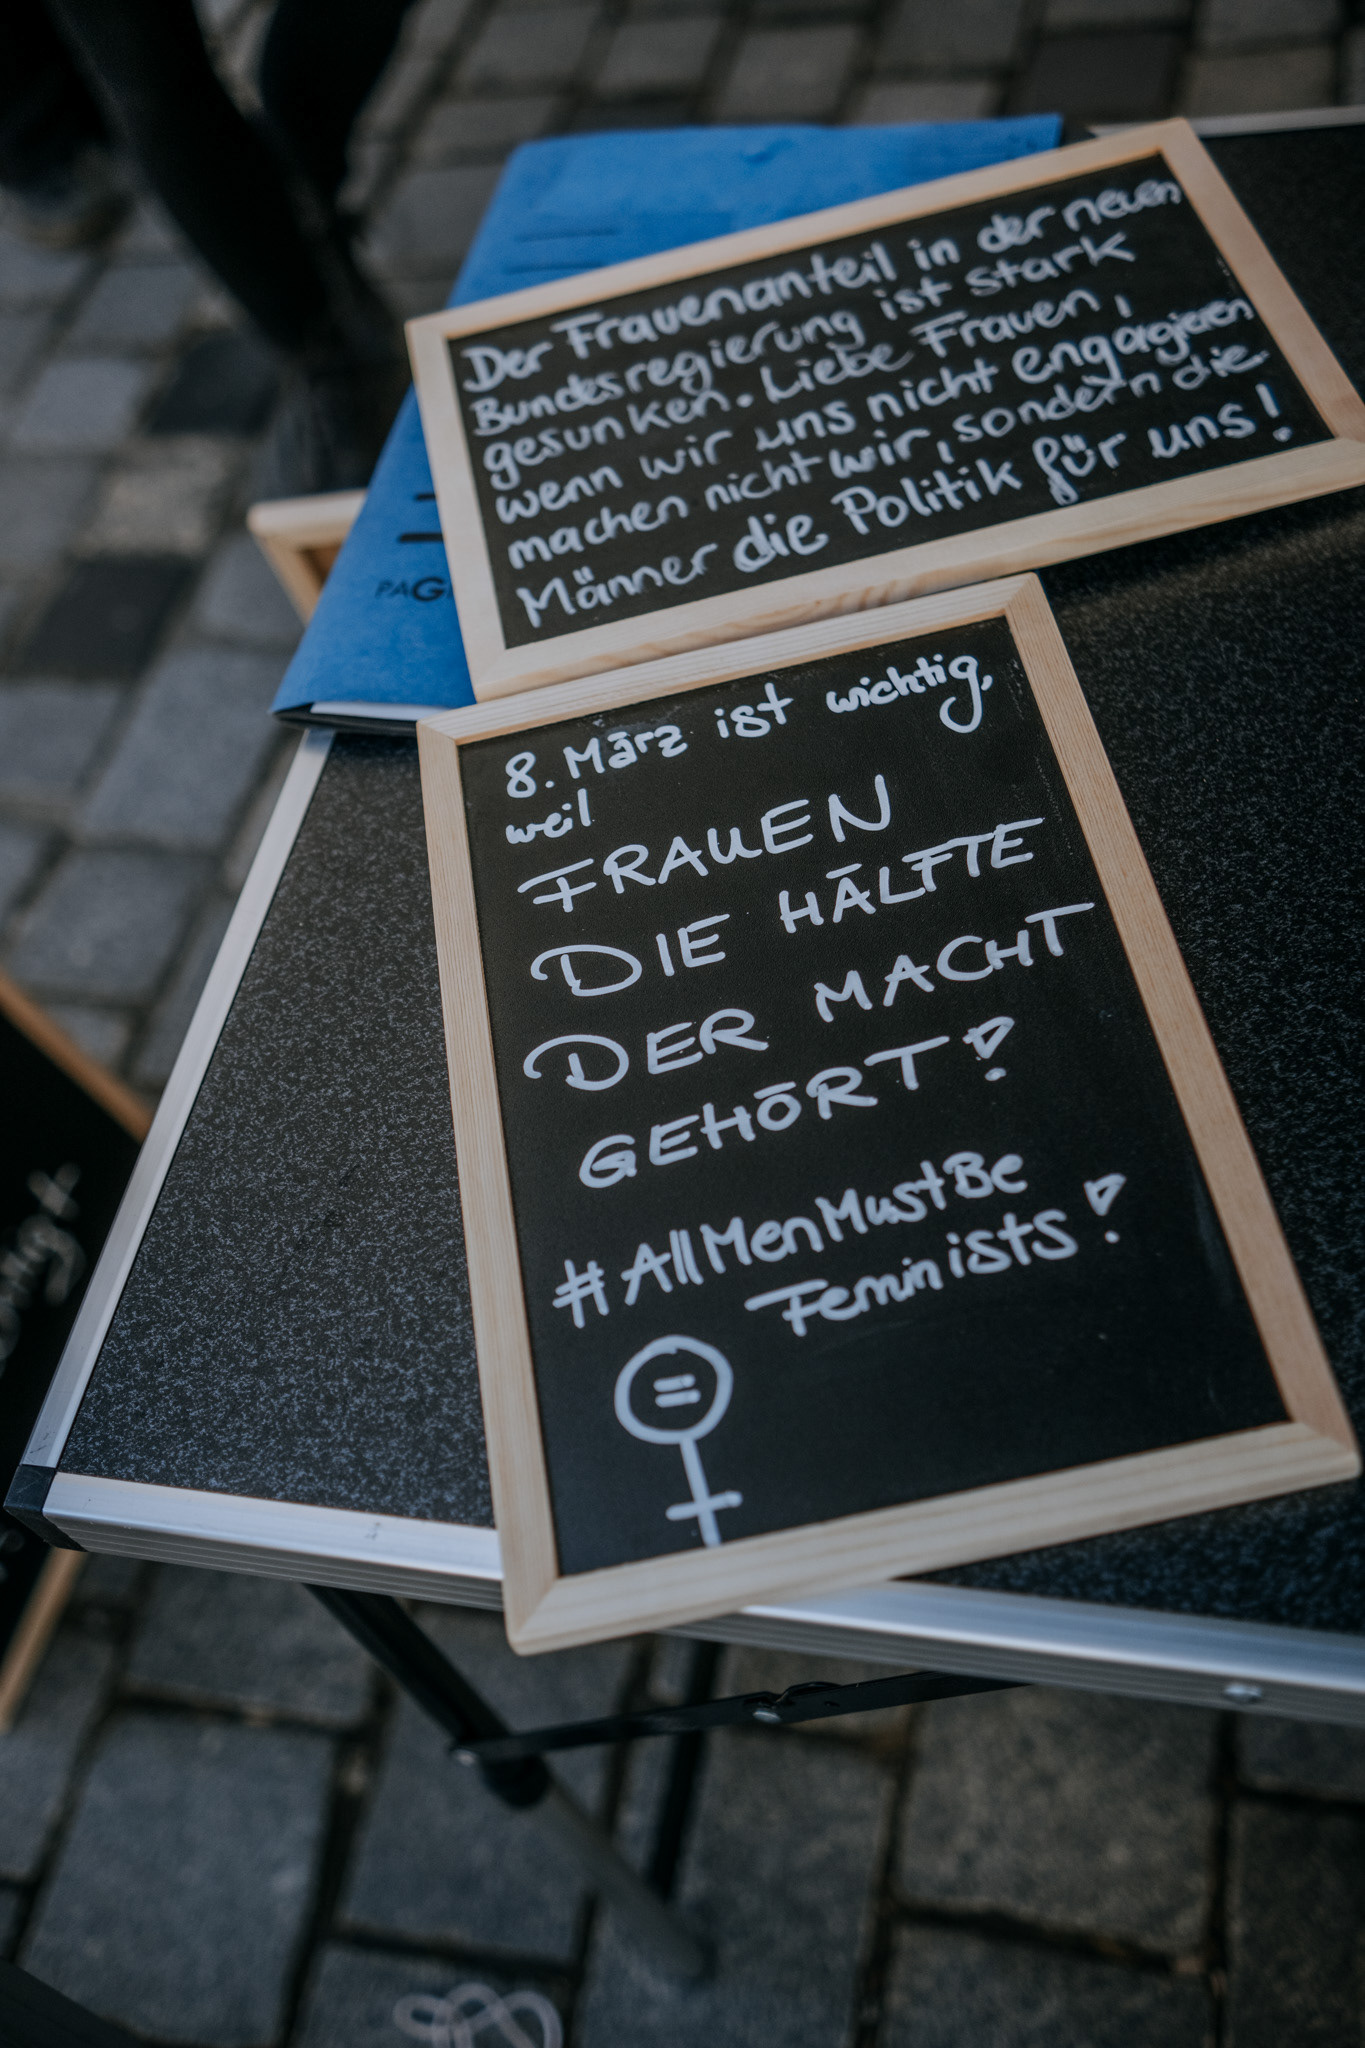 Der Frauenanteil in der neuen
Bundesregierung ist stark
gesunken. Liebe Frauen,
wenn wir uns nicht engagieren
machen nicht wir, sondern die
Männer die Politik für uns!
PAG
8. März ist wichtig,
weil
FRAUEN
DIE HÄLFTE
DER MACHT
GEHÖRT!
#AllMenMustBe
Feminists!
=